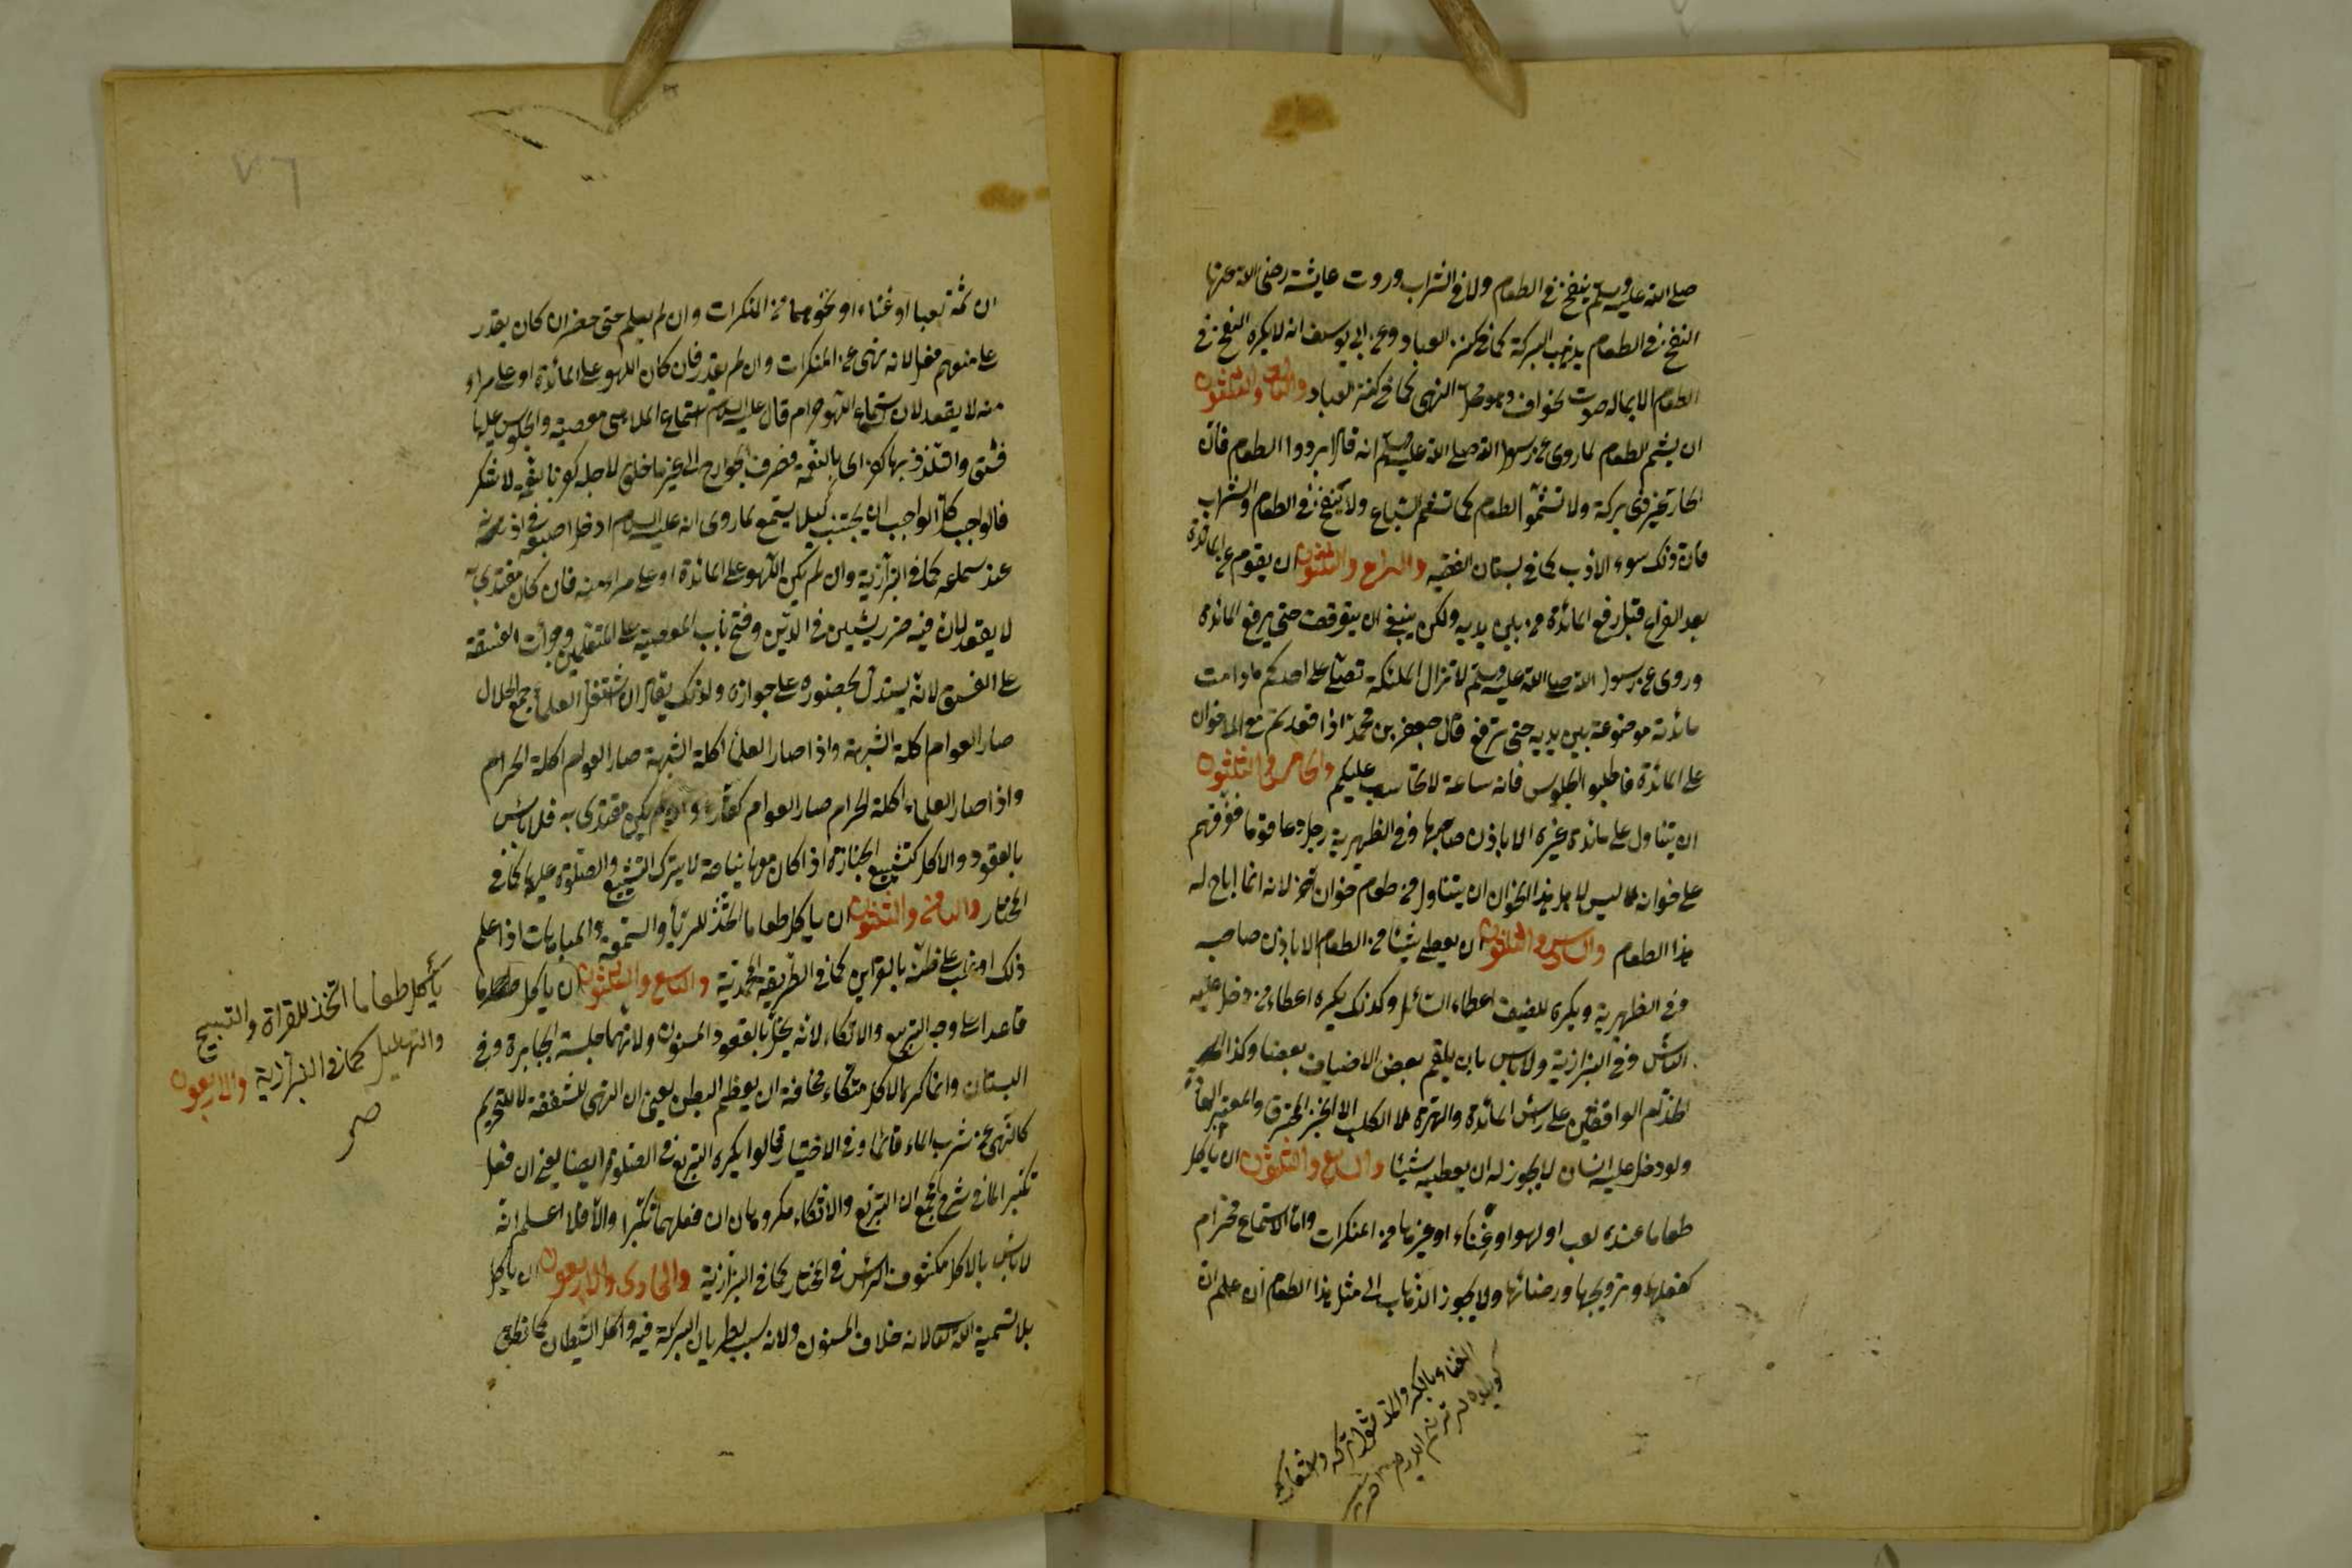 صلى الله عليه وسلم ينفخ في الطعام ولا في الشراب وروت عايشة رضى الله عنها
النفخ في الطعام يذهب البركة كما في كنز العباد وعن ابي يوسف انه لا يكره النفخ في
الطعام الا بماله صوت نحو اف وهو محل النهى كما في كنز العباد والثالث والثلثون
ان يشم الطعام لما روى عن رسول الله صلى الله عليه وسلم انه قال ابردوا الطعام فان
الحار غير ذى بركة ولا تشموا الطعام كما تشم السباع ولا تنفخ في الطعام والشراب
فان ذلك سوء الادب كما في بستان الفقيه والرابع والثلثون ان يقوم عن المائدة
بعد الفراغ قبل رفع المائدة من بين يديه ولكن ينبغى ان يتوقف حتى يرفع المائدة
وروى عن رسول الله صلى الله عليه وسلم لا تزال الملئكة تصلى على احدكم ما دامت
مائدته موضوعة بين يديه حتى ترفع قال جعفر بن محمد اذا قعدتم مع الاخوان
على المائدة فاطيلوا الجلوس فانه ساعة لا تحاسب عليكم والخامس والثلثون
ان يتناول على مائدة غيره الا باذن صاحبها وفي الظهيرية رجل دعا قوما ففرقهم
على خوانه ليس لاهل هذا الخوان ان يتناول من طعام خوان اخر لانه انما اباح له
هذا الطعام والسادس والثلثون ان يعطى شيئا من الطعام الا باذن صاحبه
وفي الظهيرية ويكره للضيف اعطاء السائل وكذلك يكره اعطاء من دخل عليه
وفي البزازية ولا باس بان يلقم بعض الاضياف بعضا وكذا
الخدم الواقفين على راس المائدة والهرة لا الكلب الا الخبز المحترق والمعتبر العادة
ولو دخل عليه انسان لا يجوز له ان يعطيه شيئا والسابع والثلثون ان ياكل
طعاما عنده لعب او لهو او غناء او غيرها من المنكرات واما الاستماع فحرام
كفعلها وترويجها ورضائها ولا يجوز الذهاب الى مثل هذا الطعام ان علم ان
ان ثمة لعبا او غناء او نحوهما من المنكرات وان لم يعلم حتى حضر ان كان يقدر
على منعهم فعل لانه نهى عن المنكرات وان لم يقدر فان كان اللهو على المائدة او على مراى
منه لا يقعد لان استماع اللهو حرام قال عليه السلام استماع الملاهى معصية والجلوس عليها
فسق والتلذذ بها كفر اى بالنعمة فصرف الجوارح الى غير ما خلق لاجله كفر بالنعمة لا شكر
فالواجب كل الواجب ان يجتنب كيلا يستمع لما روى انه عليه السلام ادخل اصبعه في اذنه
عند سماعه كما في البزازية وان لم يكن اللهو على المائدة او على مراى منه فان كان مقتدى به
لا يقعد لان فيه ضرر يشين في الدين وفتح باب المعصية على المتقين وجرأت الفسقة
على الفسق لانه يستدل بحضوره على جوازه ولذلك يقال ان اشتغل العلماء بجمع الحلال
صار العوام اكلة الشبهة واذا صار العلماء اكلة الشبهة صار العوام اكلة الحرام
واذا صار العلماء اكلة الحرام صار العوام كفارا وان لم يكن مقتدى به فلا باس
بالقعود والاكل كتشييع الجنازة اذا كان معها نياحة لا يترك التشييع والصلوة عليها كما في
المختار والثامن والثلثون ان ياكل طعاما اتخذ للرياء والسمعة والمباهات اذا علم
ذلك او غلب على ظنه بالقراين كما في الطريقة المحمدية والتاسع والثلثون ان ياكل
قاعدا على وجه التربع والاتكاء لانه يخل بالقعود المسنون ولانهما جلسة الجبابرة وفي
البستان وانما كره الاكل متكاء مخافة ان يعظم البطن يعنى ان النهى للشفقة لا للتحريم
كالنهى عن شرب الماء قائما وفي الاختيار قالوا يكره التربع في الصلوة ايضا يعنى ان فعل
تكبرا لما في شرح المجمع ان التربع والاتكاء مكروهان ان فعلهما تكبرا والا فلا اعلم انه
لا باس بالاكل مكشوف الراس في المختار كما في البزازية والحادى والاربعون ان ياكل
بلا تسمية الله تعالى لانه خلاف المسنون ولانه سبب لطريان البركة فيه واكل الشيطان كما نطق
يأكل طعاما اتخذ للقراة والتسبيح
والتهليل كما في البزازية والاربعون
صح